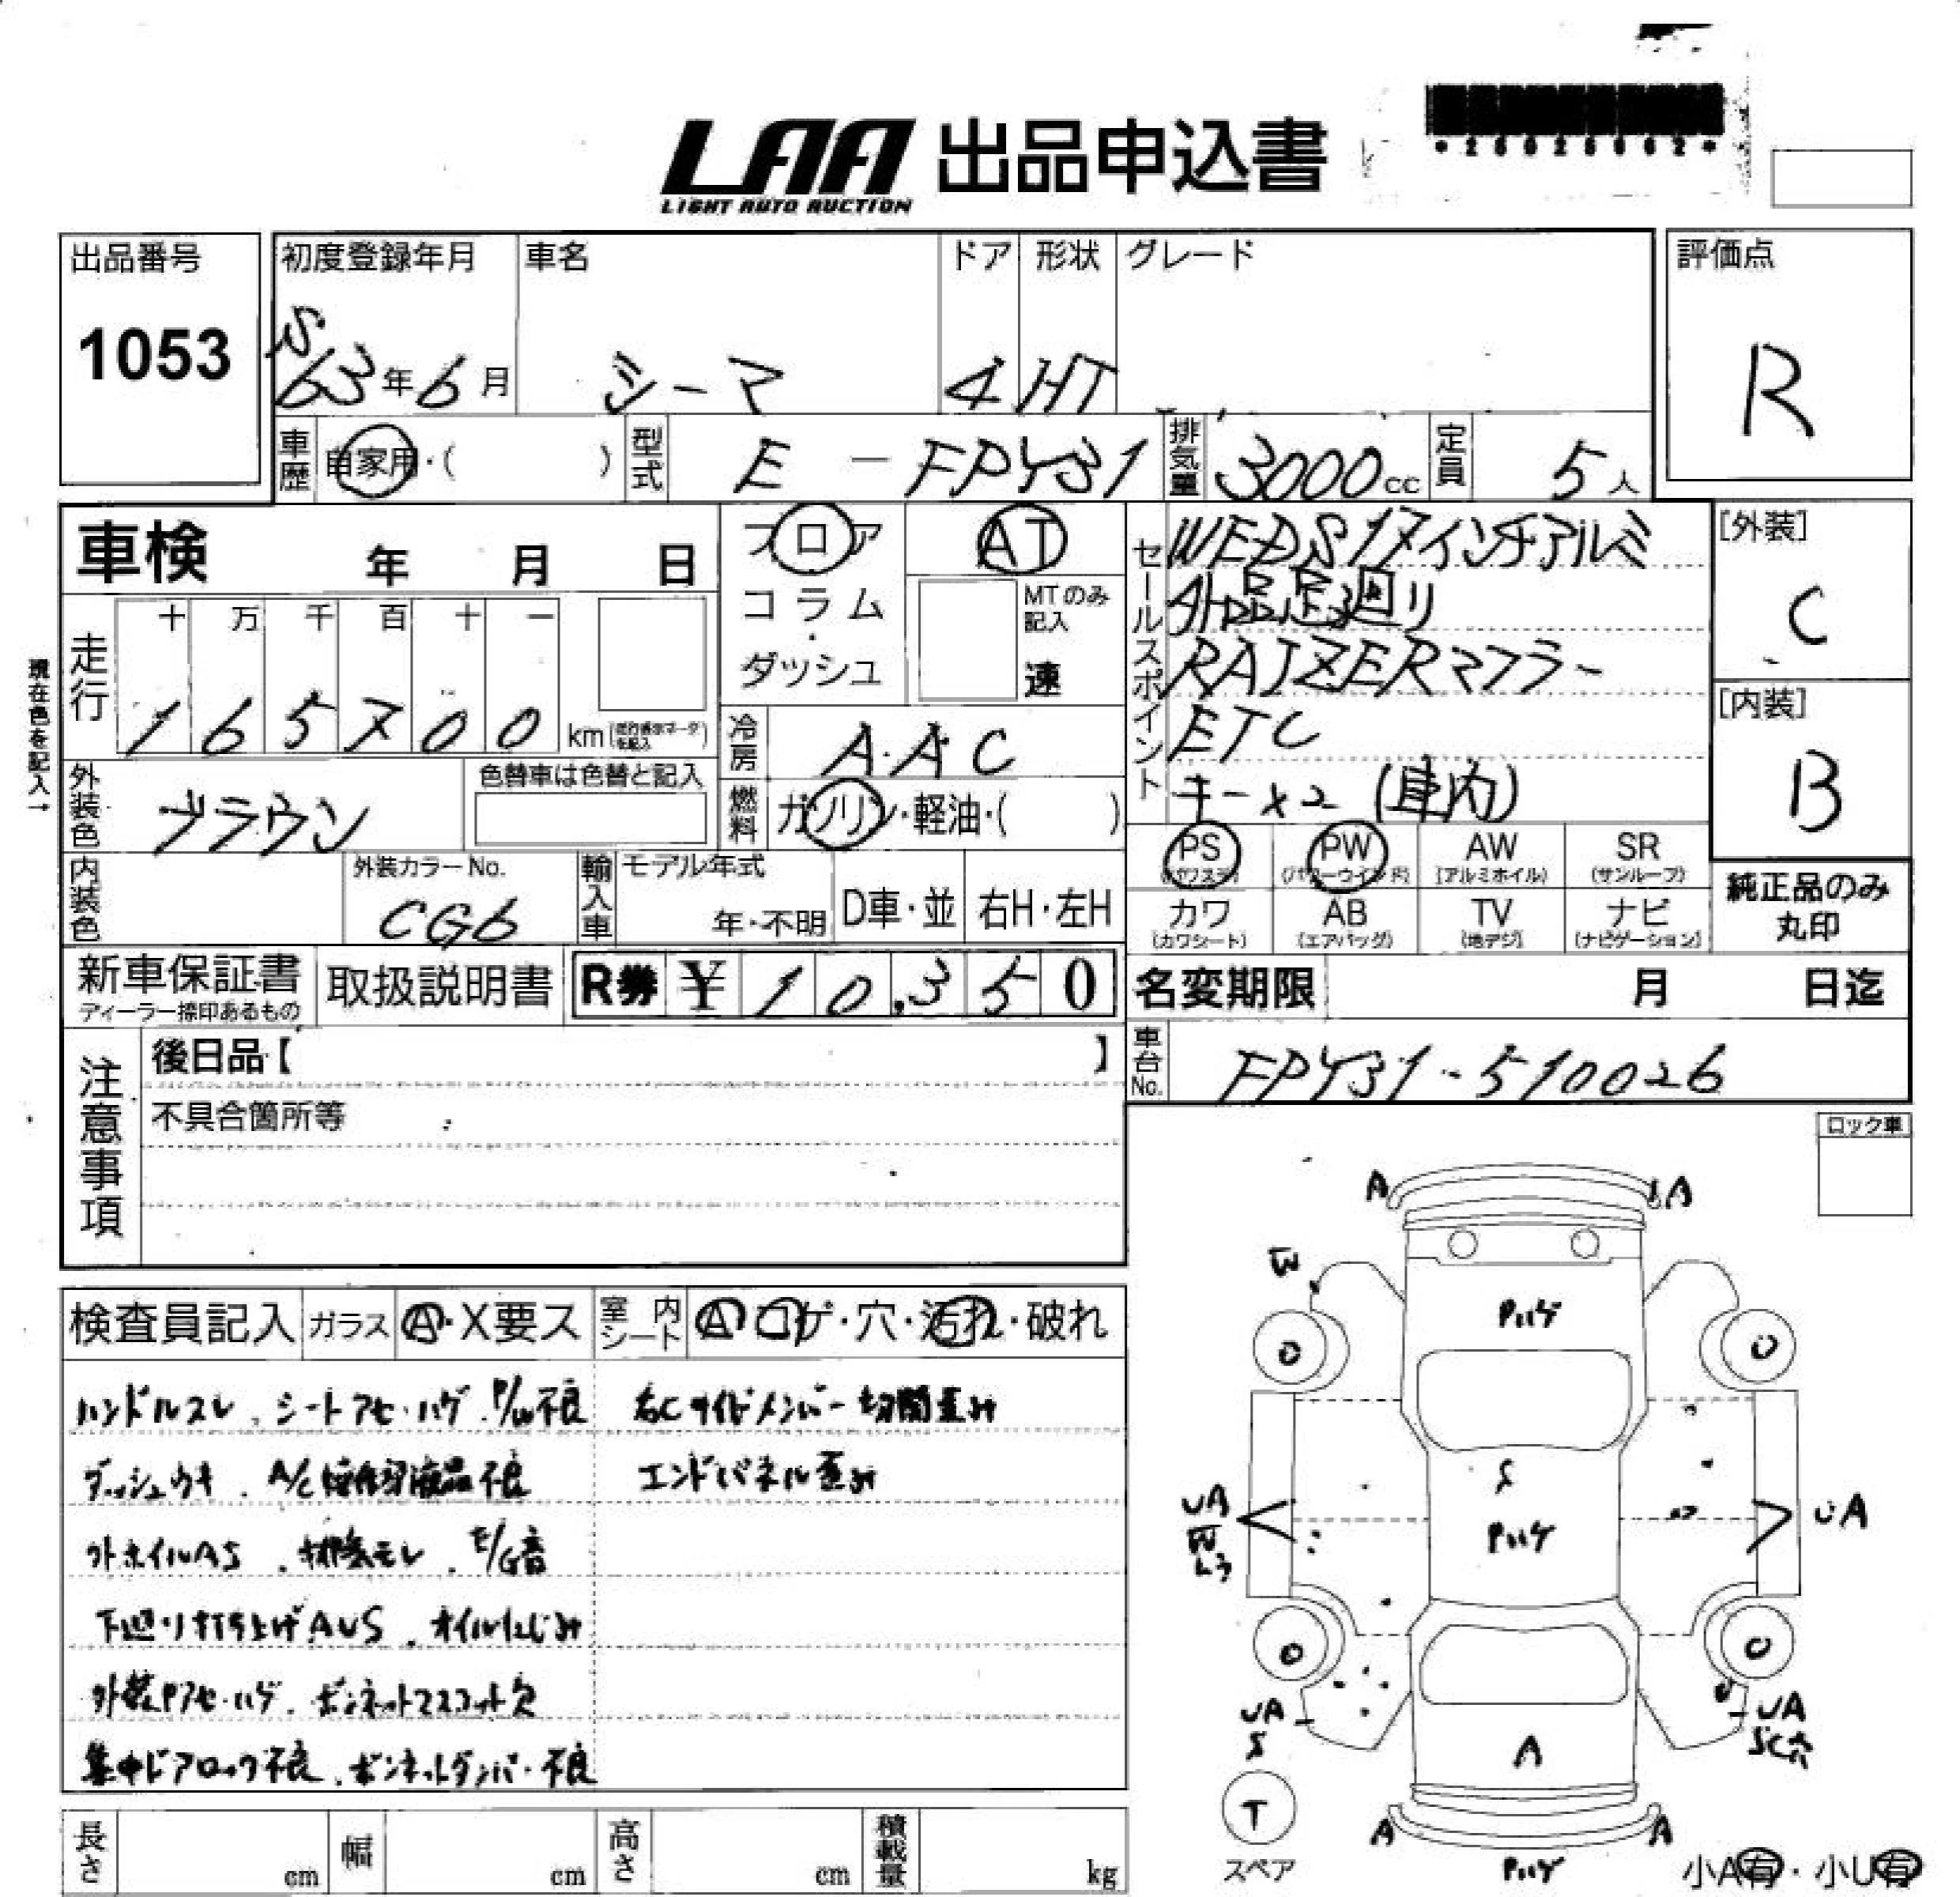 LAA 出品申込書
LIGHT AUTO AUCTION
出品番号
1053
初度登録年月
S63年6月
車名
シーマ
ドア
4
形状
HT
グレード
評価点
R
車歴
自家用・( )
型式
E-FPY31
排気量
3000cc
定員
5人
車検 年 月 日
フロア
コラム
・
ダッシュ
AT
MTのみ
記入
速
セールスポイント
WEDS17インチアルミ
外品足廻り
RAIZERマフラー
ETC
キー×2 (車内)
[外装]
C
[内装]
B
現在色を記入→
走行
十 万 千 百 十 一
1 6 5 7 0 0 km
冷房
AAC
外装色
ブラウン
色替車は色替と記入
燃料
ガソリン・軽油・( )
PS
(パワステ)
PW
(パワーウインド)
AW
(アルミホイル)
SR
(サンルーフ)
内装色
外装カラーNo.
CG6
輸入車
モデル年式
年・不明
D車・並
右H・左H
カワ
(カワシート)
AB
(エアバッグ)
TV
(地デジ)
ナビ
(ナビゲーション)
純正品のみ
丸印
新車保証書
ディーラー捺印あるもの
取扱説明書
R券 ¥ 10,350
名変期限 月 日迄
注意事項
後日品【 】
不具合箇所等
車台No.
FPY31-510026
ロック車
検査員記入
ガラス
A・X要ス
室内シート
A コゲ・穴・汚れ・破れ
ハンドルスレ、シートアセ・ハゲ、P/W不良
右Cサイドメンバー切開歪み
ダッシュウキ、A/C操作部液晶不良
エンドパネル歪み
外ホイルAS、排気モレ、E/G音
下廻り打ち上げAUS、オイルにじみ
外装Pアセ・ハゲ、ボンネットマスコット欠
集中ドアロック不良、ボンネットダンパー不良
A
A
W
Pハゲ
O
O
S
UA
UA
Pハゲ
O
O
UA
S
UA
SC穴
A
T
スペア
A
A
Pハゲ
小A有・小U有
長さ cm
幅 cm
高さ cm
積載量 kg